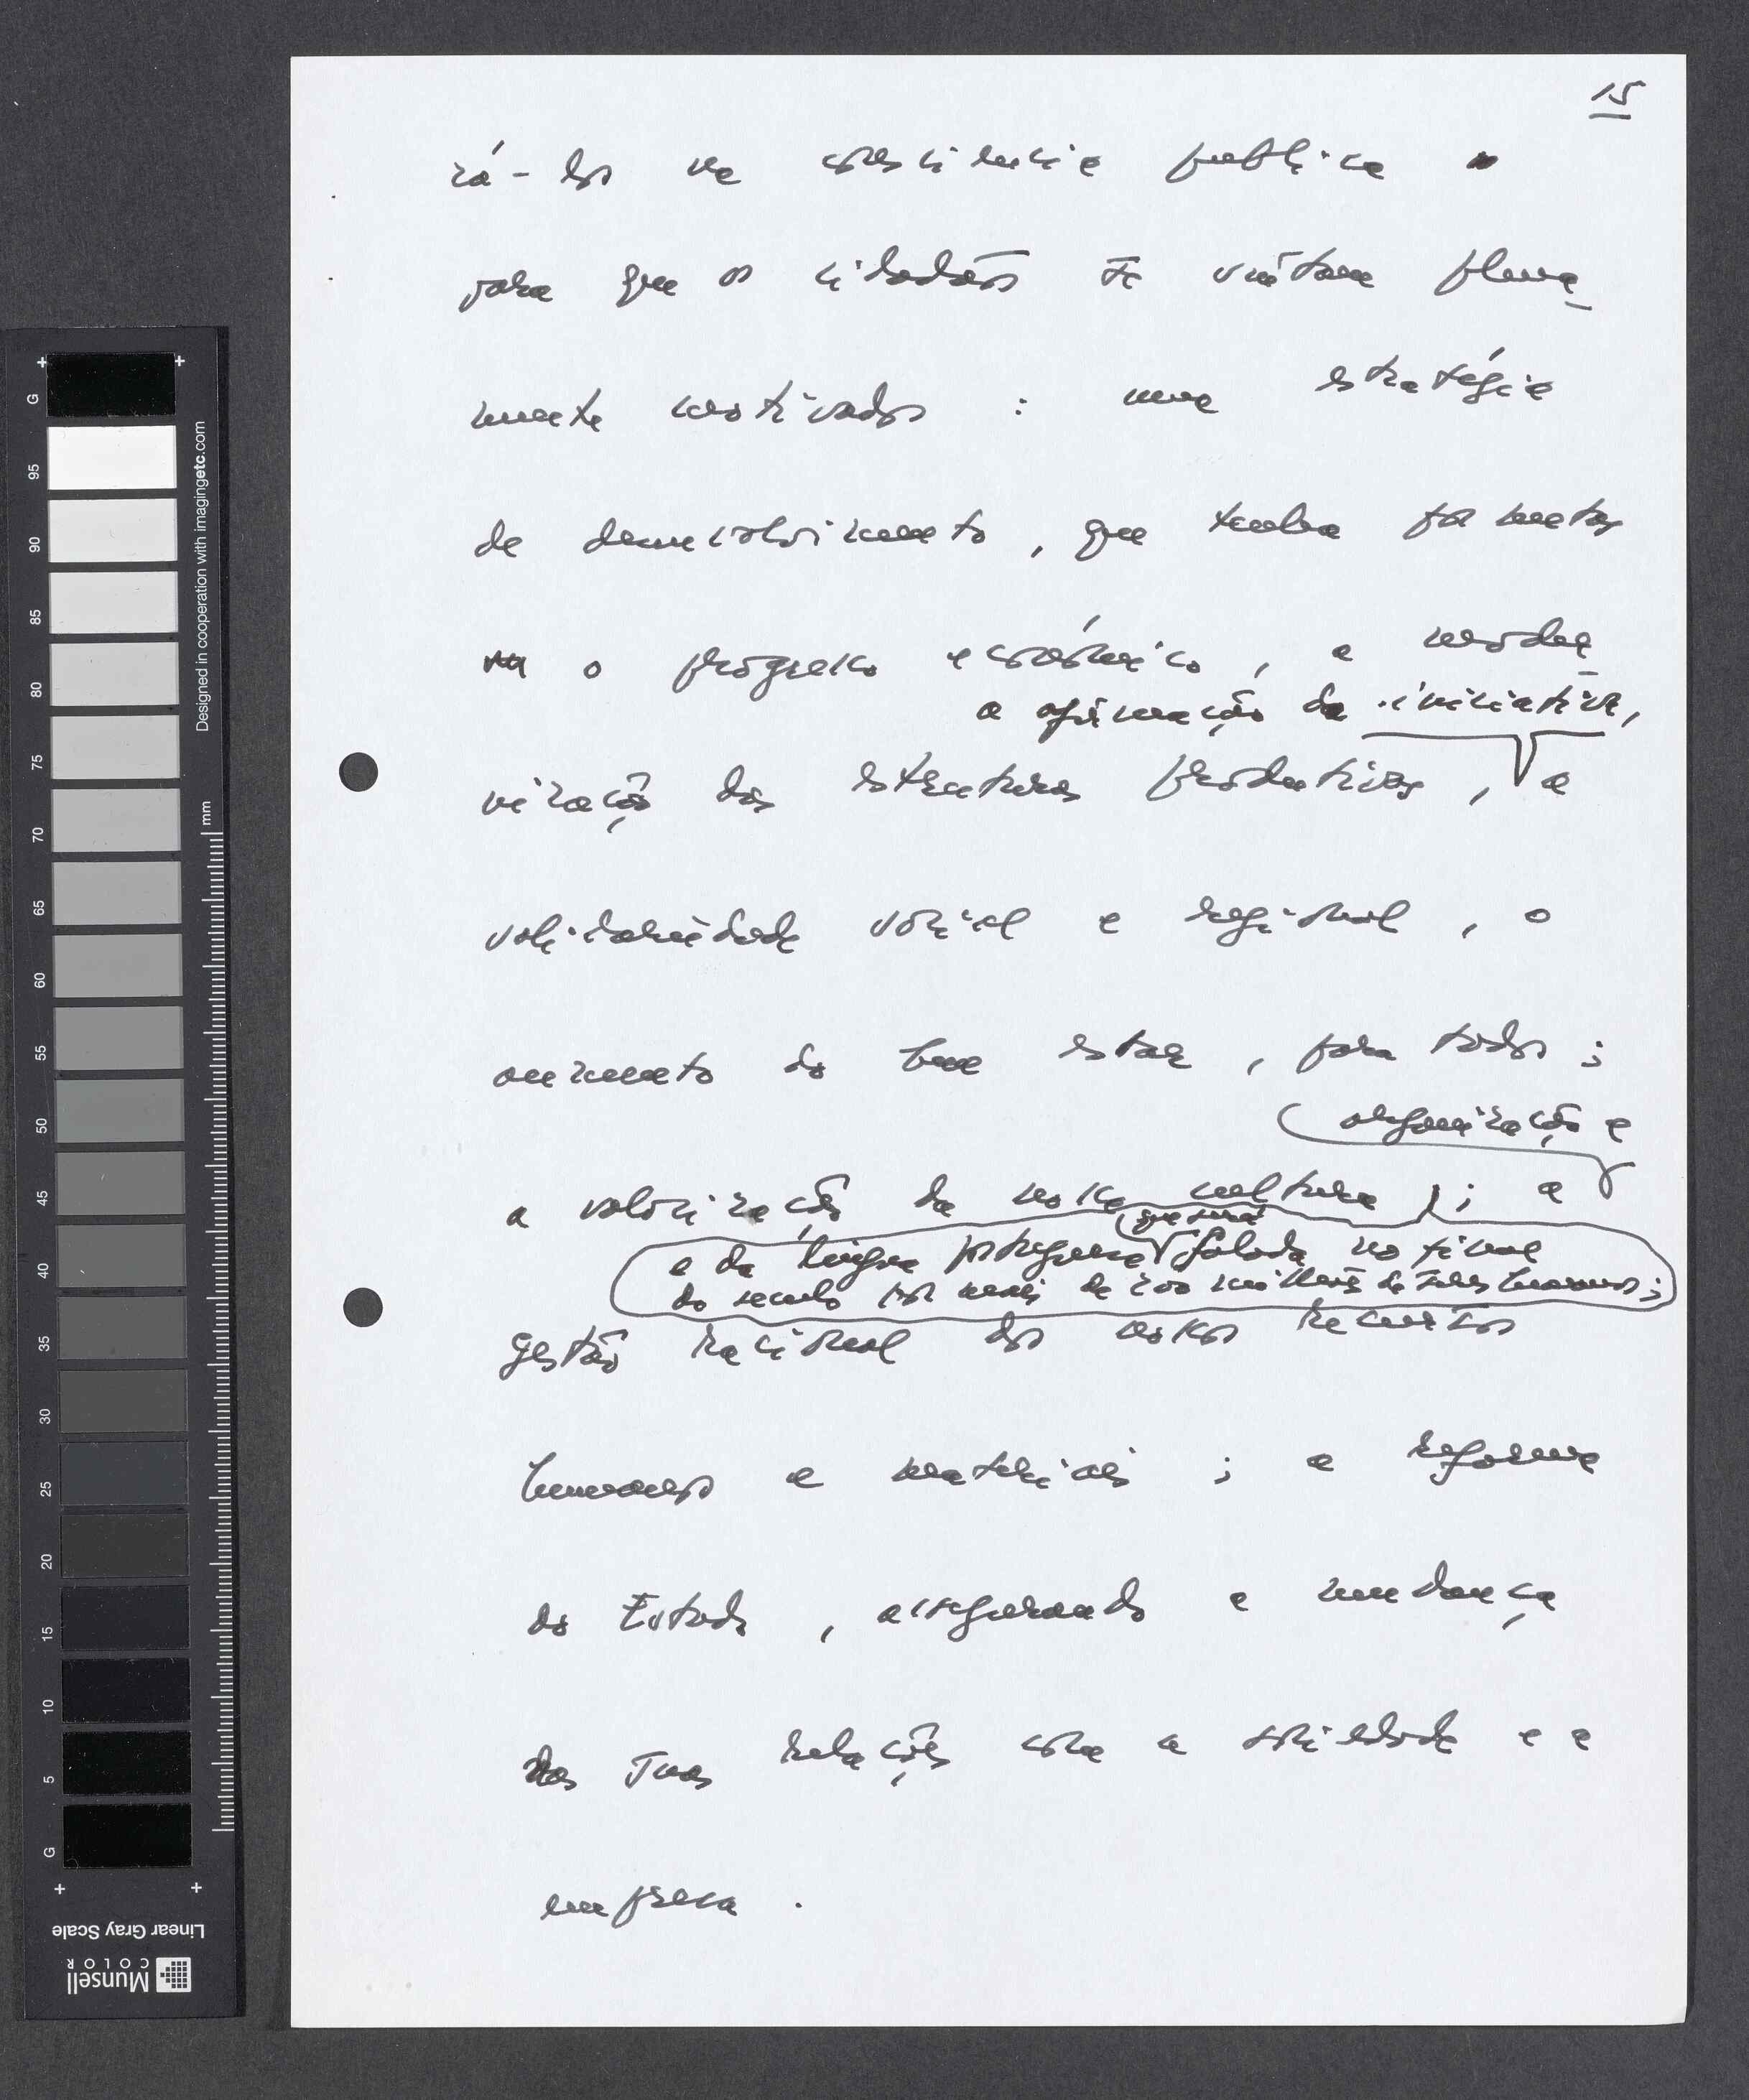 15
rá-los na consciência publica
para que os cidadãos se sintam plena
mente motivados : uma estratégia
de desenvolvimento , que tenha por metas
o progresso económico , a moder
a afirmação da iniciativa,
nização das estruturas produtivas , a
solidariedade social e regional , o
aumento do bem estar , para todos ;
organização e
a valorização da nossa cultura ; a
que será
e da língua portuguesa falada no final
do seculo por mais de 200 milhões de seres humanos ;
gestão racional dos nossos recursos
humanos e materiais ; a reforma
do Estado , assegurando a mudança
das suas relações com a sociedade e a
empresa .
G
95
90
85
80
75
70
65
60
55
50
45
40
35
30
25
20
15
10
5
G
Designed in cooperation with imagingetc.com
mm
Linear Gray Scale
Munsell
COLOR